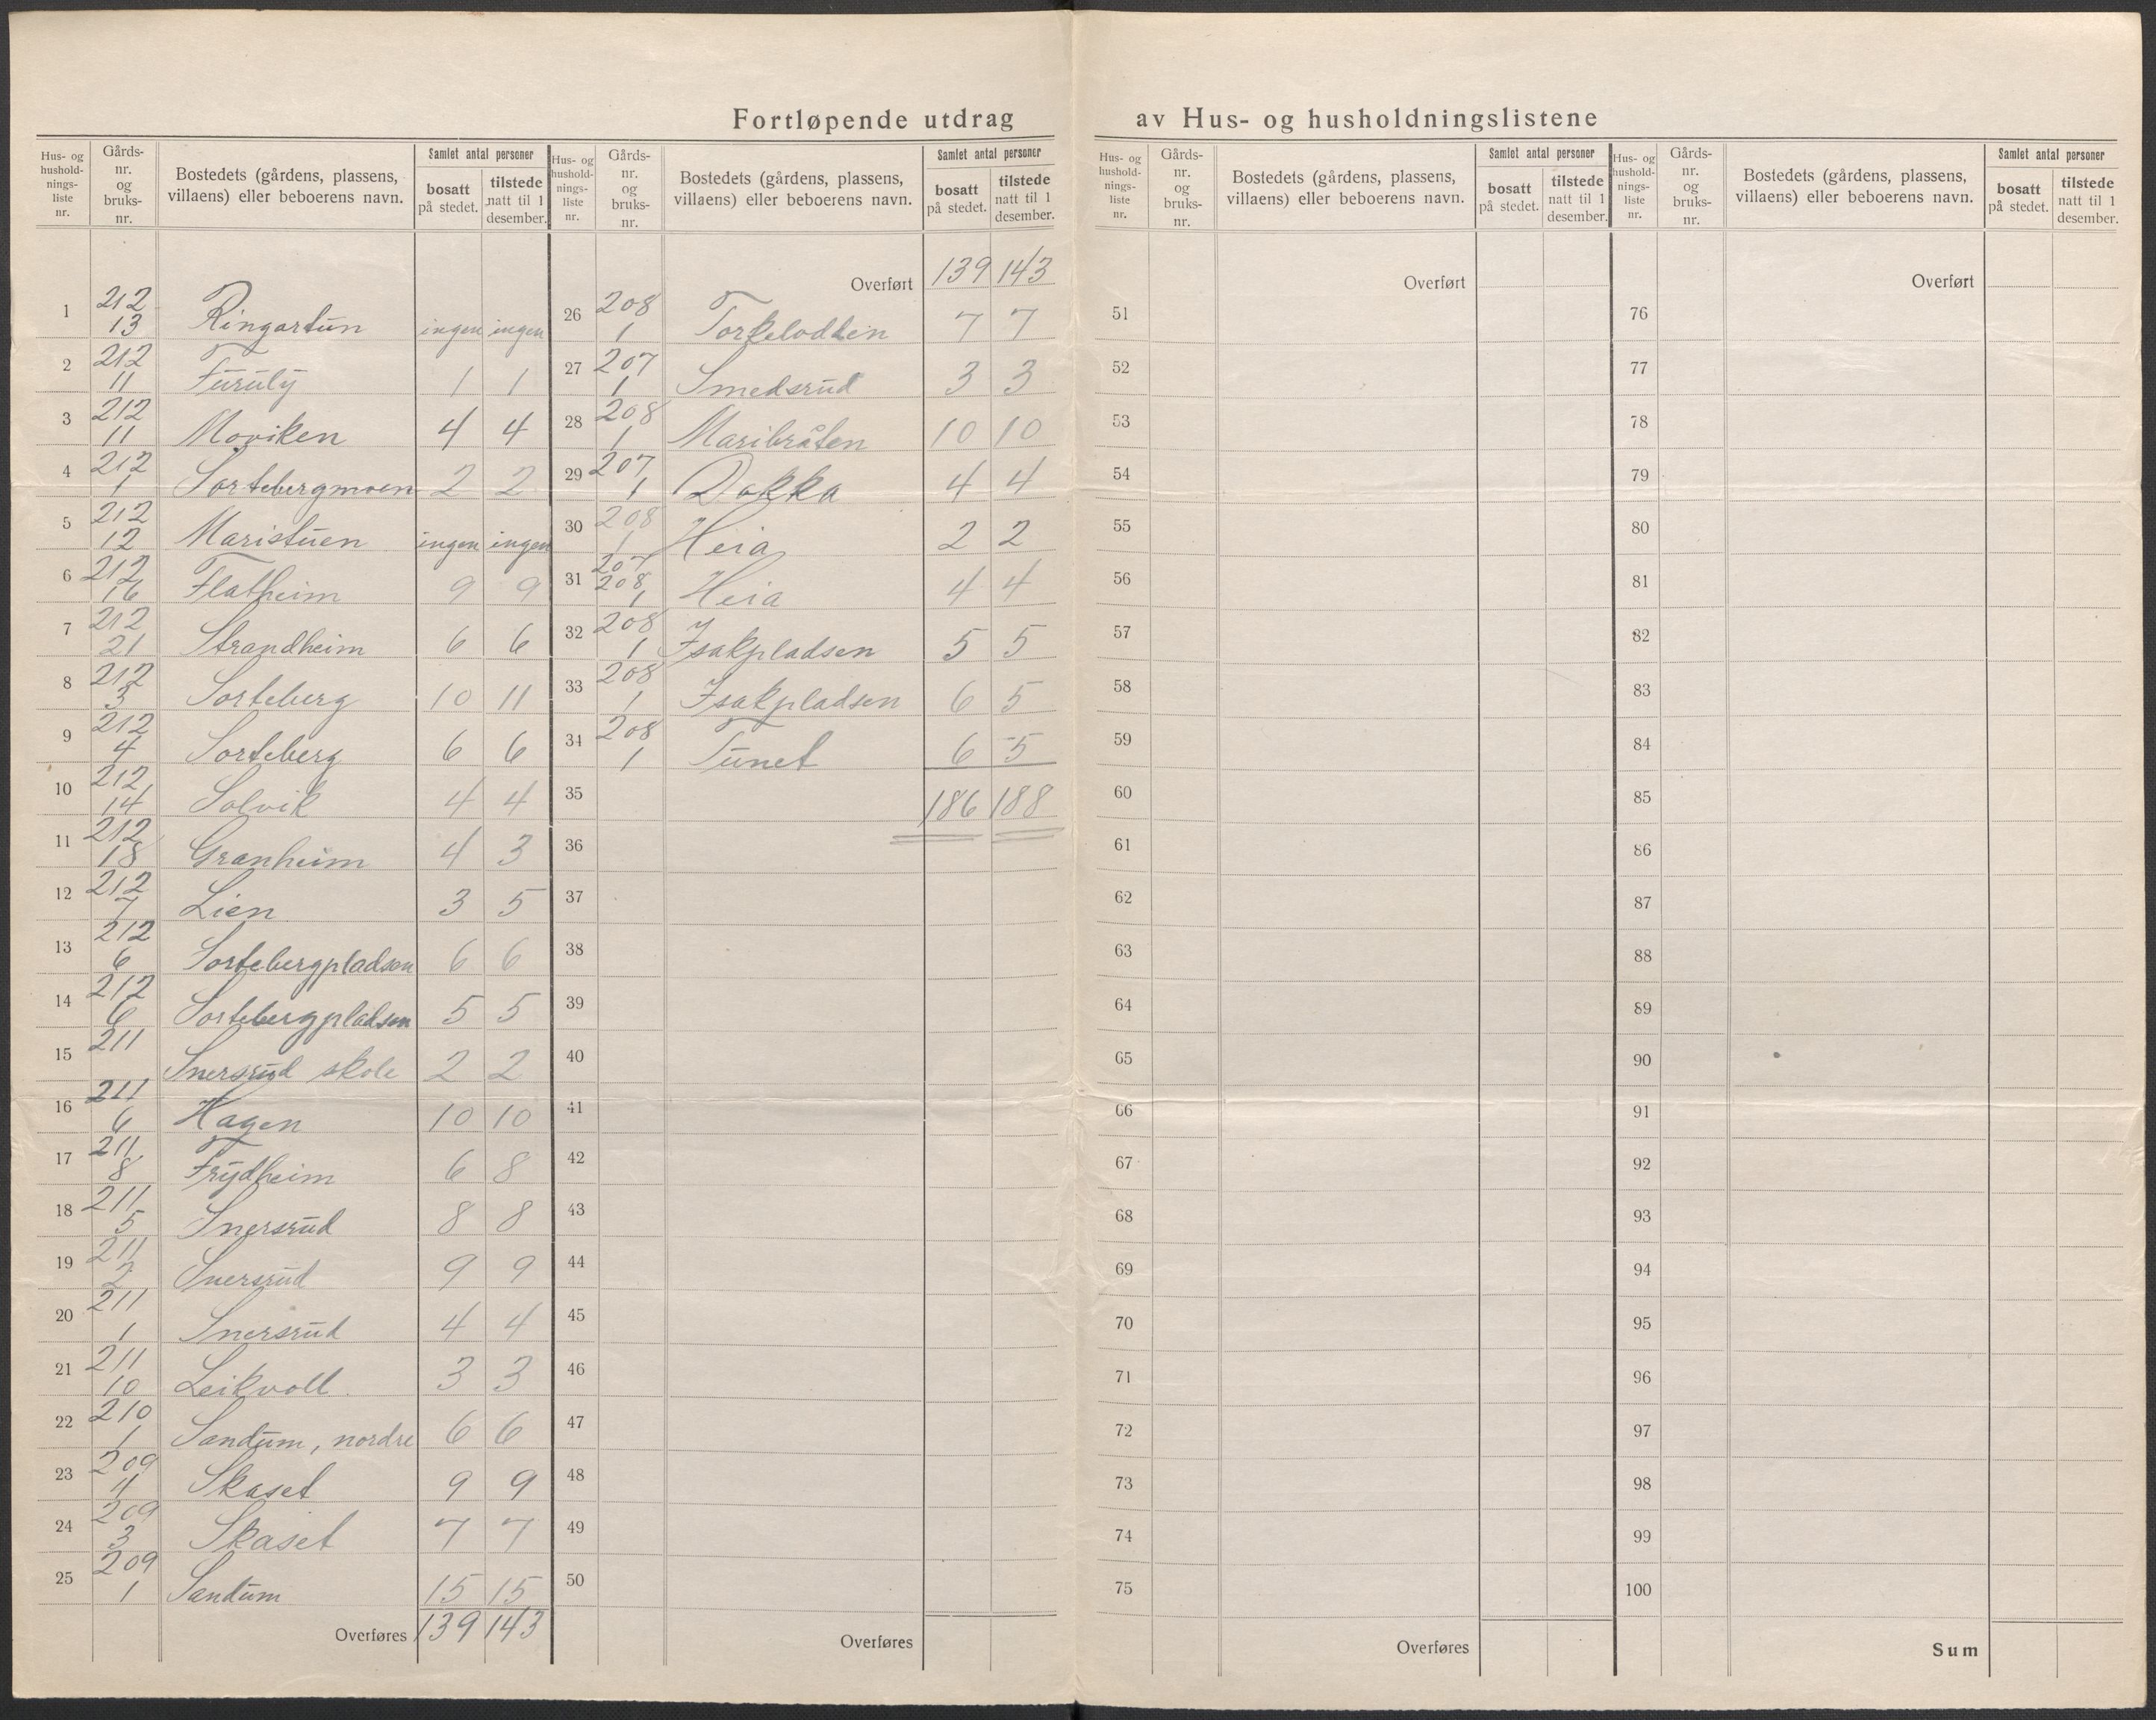 Fortløpende utdrag av Hus- og husholdningslistene
Hus- og husholdnings-liste nr. | Gårds-nr. og bruks-nr. | Bostedets (gårdens, plassens, villaens) eller beboerens navn. | Samlet antal personer | bosatt på stedet. | tilstede natt til 1 desember.
1 | 212 13 | Ringartun | ingen | ingen
2 | 212 11 | Furuly | 1 | 1
3 | 212 11 | Moviken | 4 | 4
4 | 212 1 | Sortebergmoen | 2 | 2
5 | 212 12 | Maristuen | ingen | ingen
6 | 212 16 | Flatheim | 9 | 9
7 | 212 21 | Strandheim | 6 | 6
8 | 212 3 | Sorteberg | 10 | 11
9 | 212 4 | Sorteberg | 6 | 6
10 | 212 14 | Solvik | 4 | 4
11 | 212 18 | Granheim | 4 | 3
12 | 212 7 | Lien | 3 | 5
13 | 212 6 | Sortebergpladsen | 6 | 6
14 | 212 6 | Sortebergpladsen | 5 | 5
15 | 211 | Snersrud skole | 2 | 2
16 | 211 6 | Hagen | 10 | 10
17 | 211 8 | Frydheim | 6 | 8
18 | 211 5 | Snersrud | 8 | 8
19 | 211 2 | Snersrud | 9 | 9
20 | 211 1 | Snersrud | 4 | 4
21 | 211 10 | Leikvoll | 3 | 3
22 | 210 1 | Sandum, nordre | 6 | 6
23 | 209 4 | Skaset | 9 | 9
24 | 209 3 | Skaset | 7 | 7
25 | 209 1 | Sandum | 15 | 15
Overføres | 139 | 143
Hus- og husholdnings-liste nr. | Gårds-nr. og bruks-nr. | Bostedets (gårdens, plassens, villaens) eller beboerens navn. | Samlet antal personer | bosatt på stedet. | tilstede natt til 1 desember.
Overført | 139 | 143
26 | 208 1 | Torkelodden | 7 | 7
27 | 207 1 | Smedsrud | 3 | 3
28 | 208 1 | Maribråten | 10 | 10
29 | 207 1 | Dokka | 4 | 4
30 | 208 1 | Heia | 2 | 2
31 | 207 208 1 | Heia | 4 | 4
32 | 208 1 | Isakpladsen | 5 | 5
33 | 208 1 | Isakpladsen | 6 | 5
34 | 208 1 | Tunet | 6 | 5
35 | 186 | 188
36
37
38
39
40
41
42
43
44
45
46
47
48
49
50
Overføres
Hus- og husholdnings-liste nr. | Gårds-nr. og bruks-nr. | Bostedets (gårdens, plassens, villaens) eller beboerens navn. | Samlet antal personer | bosatt på stedet. | tilstede natt til 1 desember.
Overført
51
52
53
54
55
56
57
58
59
60
61
62
63
64
65
66
67
68
69
70
71
72
73
74
75
Overføres
Hus- og husholdnings-liste nr. | Gårds-nr. og bruks-nr. | Bostedets (gårdens, plassens, villaens) eller beboerens navn. | Samlet antal personer | bosatt på stedet. | tilstede natt til 1 desember.
Overført
76
77
78
79
80
81
82
83
84
85
86
87
88
89
90
91
92
93
94
95
96
97
98
99
100
Sum